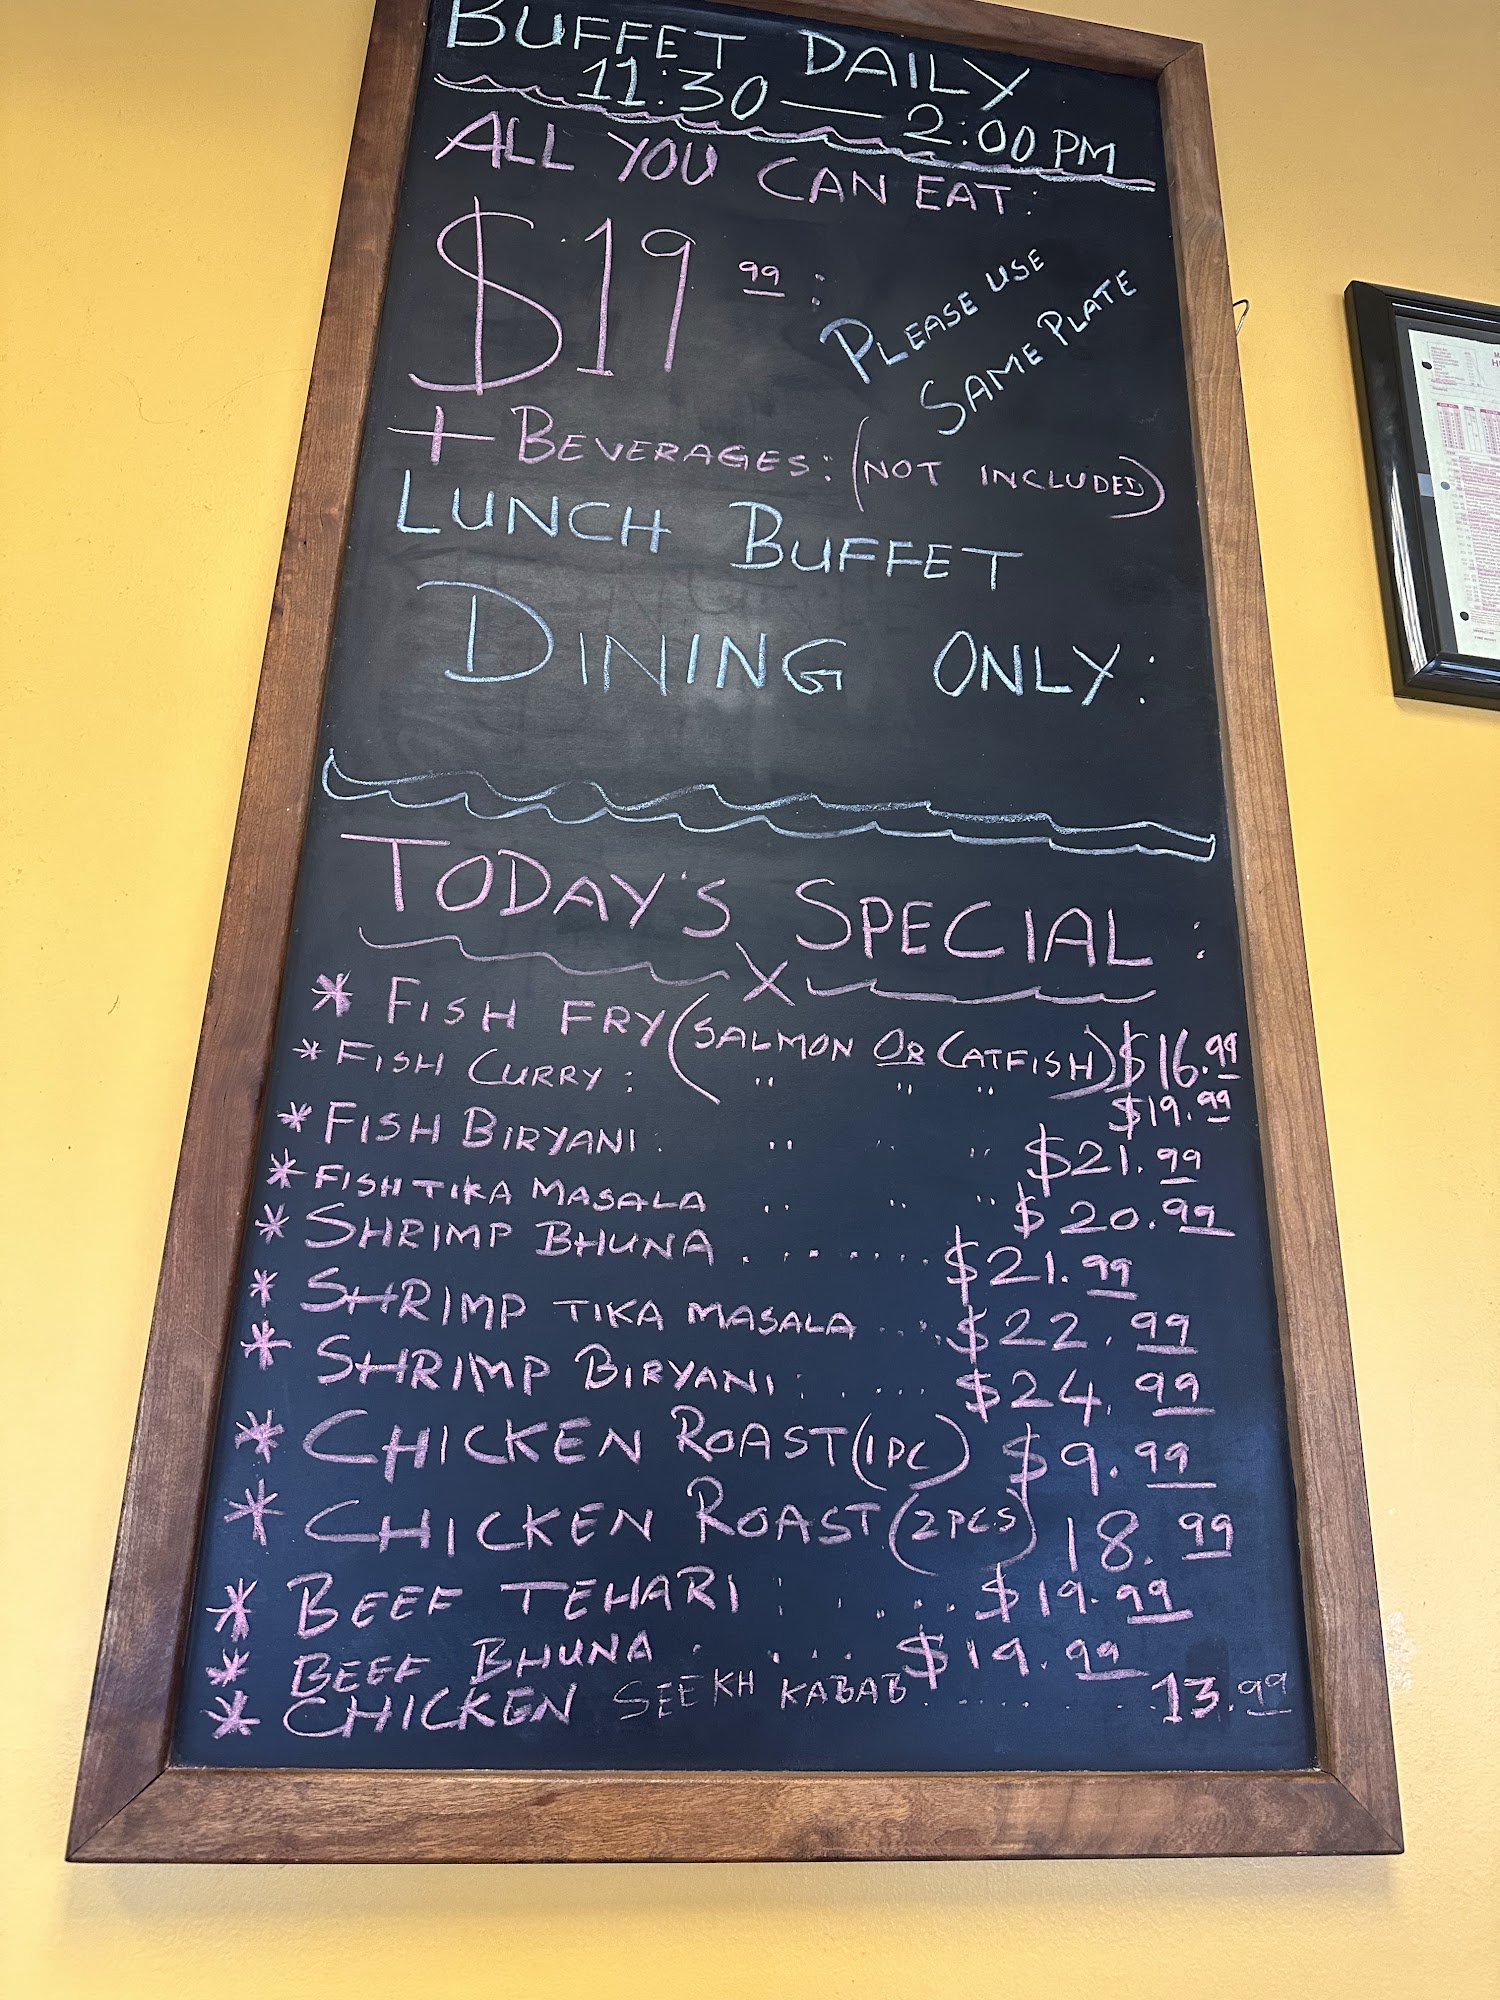 BUFFET DAILY
11:30 — 2:00 PM
ALL YOU CAN EAT:
$19 99 :
PLEASE USE
SAME PLATE
+ BEVERAGES: (NOT INCLUDED)
LUNCH BUFFET
DINING ONLY:
TODAY'S SPECIAL:
* FISH FRY (SALMON OR CATFISH) $16.99
* FISH CURRY: " " " $19.99
* FISH BIRYANI: " " " $21.99
* FISH TIKA MASALA " " " $20.99
* SHRIMP BHUNA ....... $21.99
* SHRIMP TIKA MASALA .... $22.99
* SHRIMP BIRYANI: .... $24.99
* CHICKEN ROAST (1PC) $9.99
* CHICKEN ROAST (2PCS) 18.99
* BEEF TEHARI: .... $19.99
* BEEF BHUNA: .... $19.99
* CHICKEN SEEKH KABAB ....... 13.99